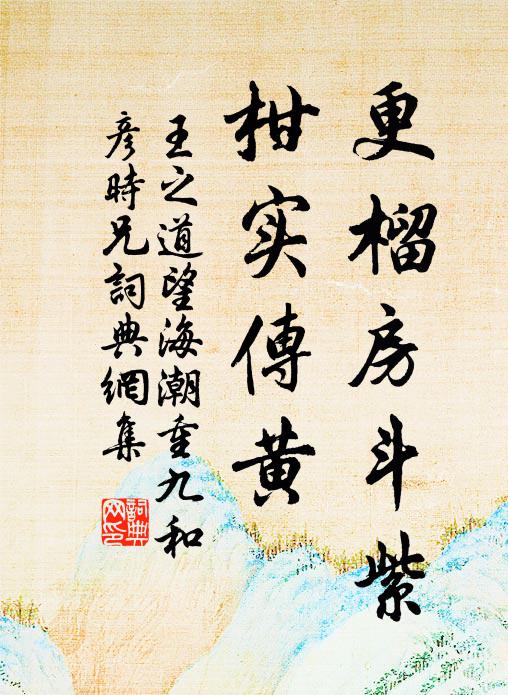 更榴房斗紫
柑实傳黄
王之道望海潮重九和
彦時兄詞典網集
詞典
网印